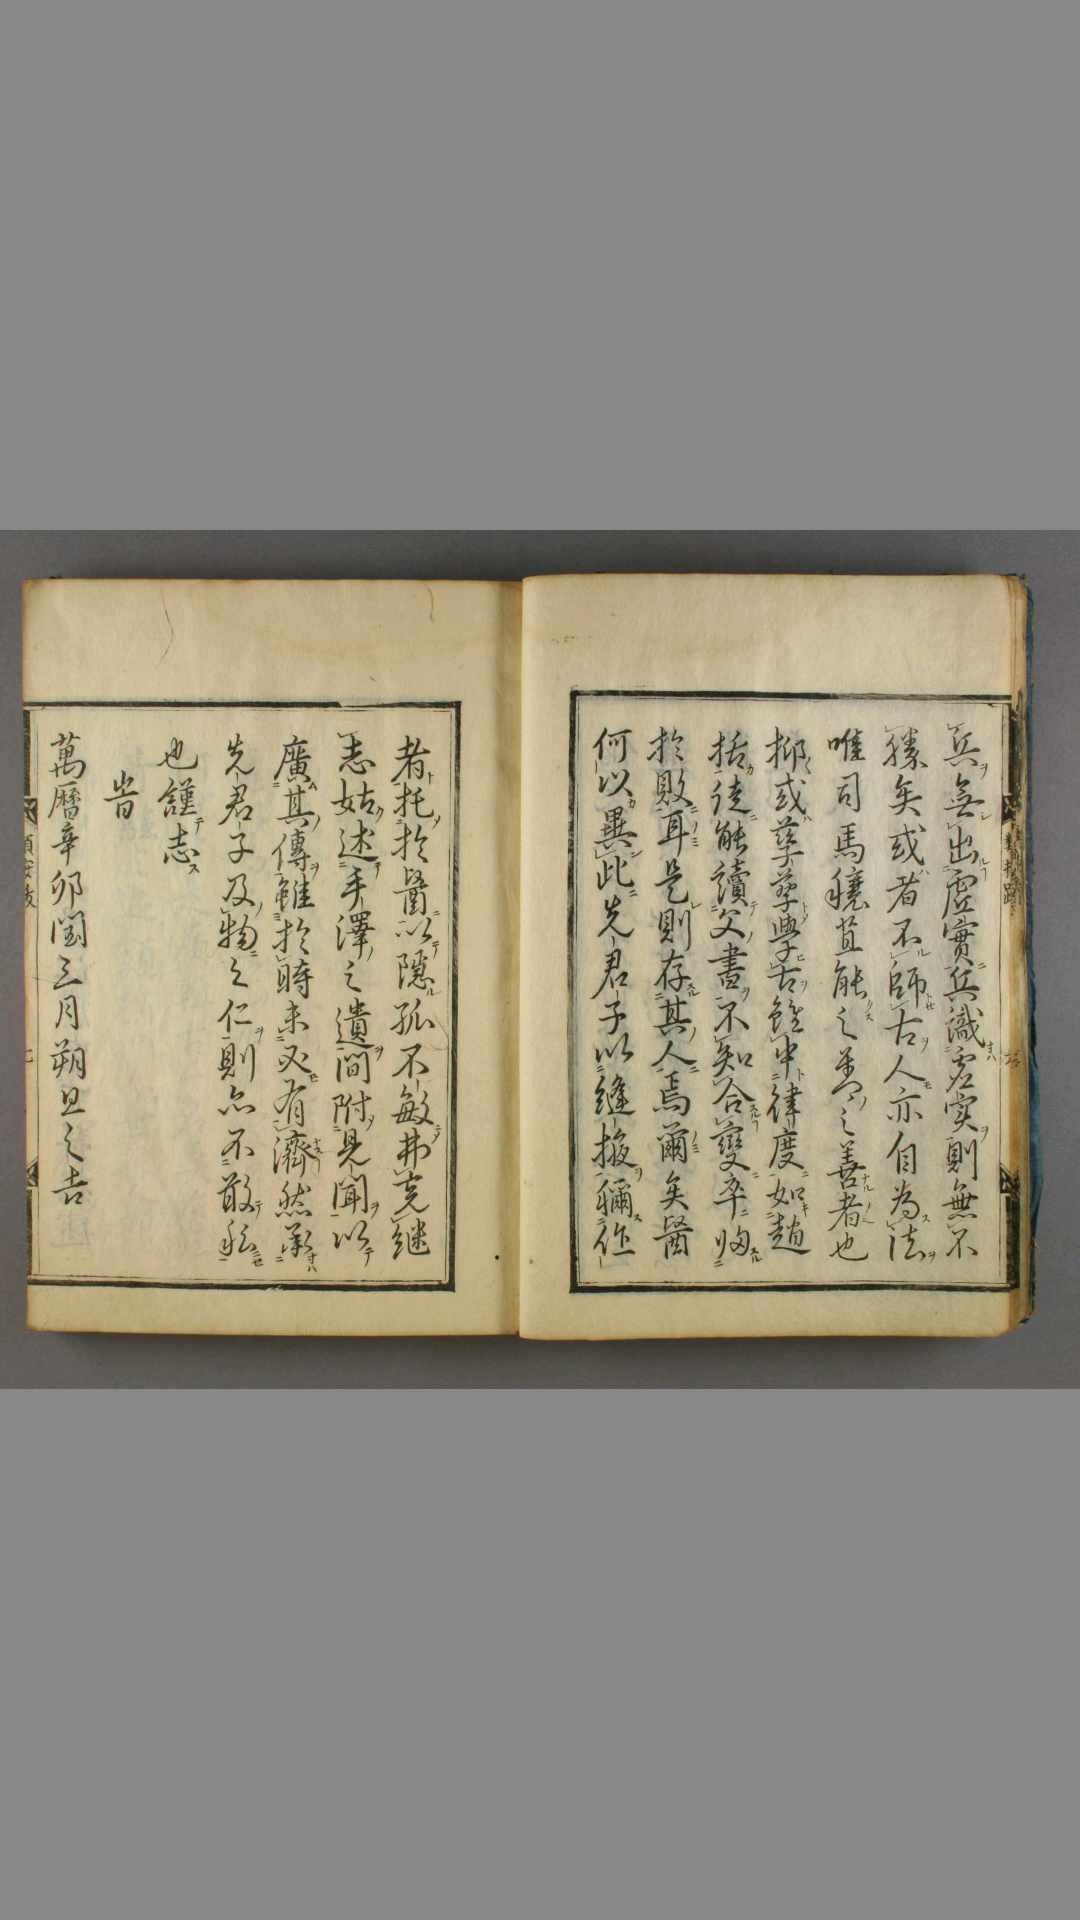 兵無出虚實兵識虚实則無不
勝矣或者不師古人亦自為法
唯司馬穰苴能之兵之善者也
抑或孳孳學古雖中律度如趙
括徒能讀父書不知合變卒归
於敗耳是則存其人焉爾矣醫
何以異此先君子以縫掖稱
者托於醫以隱孤不敏弗克継
志姑述手澤之遺間附見聞以
廣其傳雖於時未必有濟然承
先君子及物之仁則亦不敢私
也謹志
旹
萬曆辛卯閏三月朔旦之吉